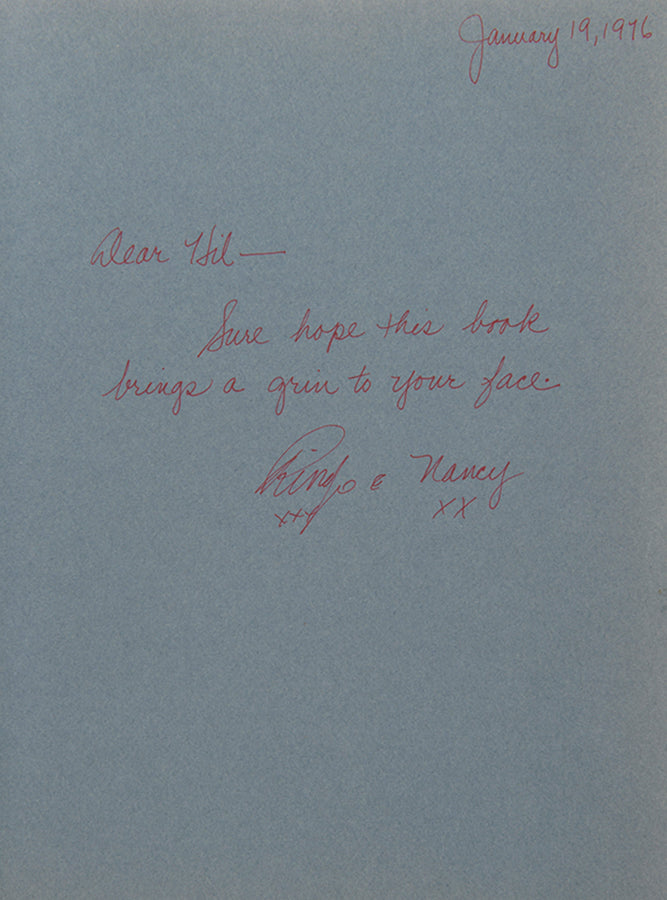 January 19, 1976
Dear Hil —
Sure hope this book
brings a grin to your face.
Ringo & Nancy
xxx xx